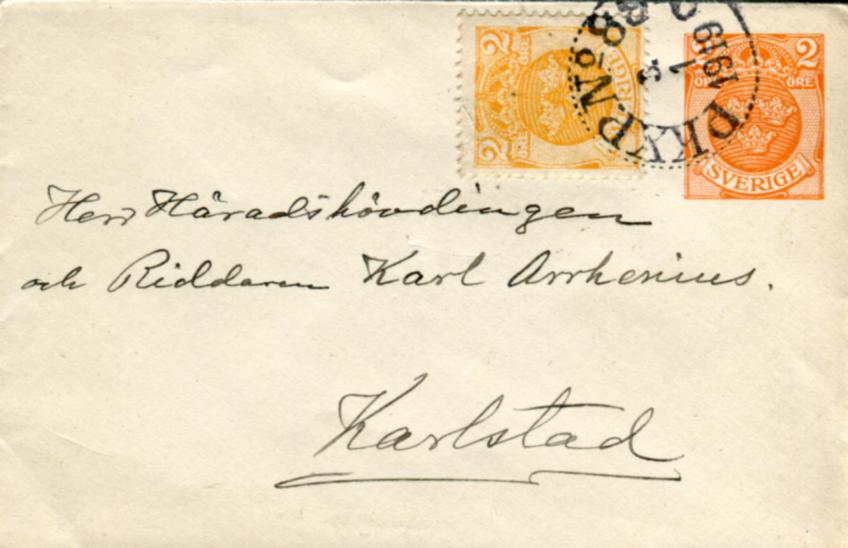 2 ÖRE
2
2
ÖRE
SVERIGE
PKXP No 8
3 1
1919
Herr Häradshövdingen
och Riddaren Karl Arrhenius.
Karlstad